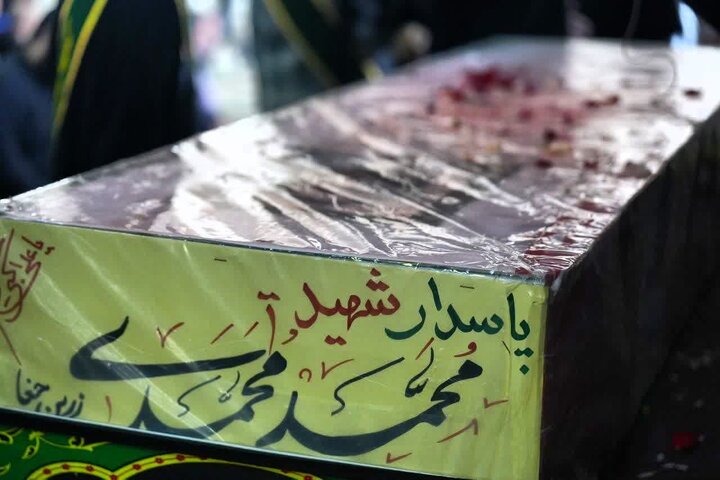 پاسدار شهید
محمد محمدی
زرین